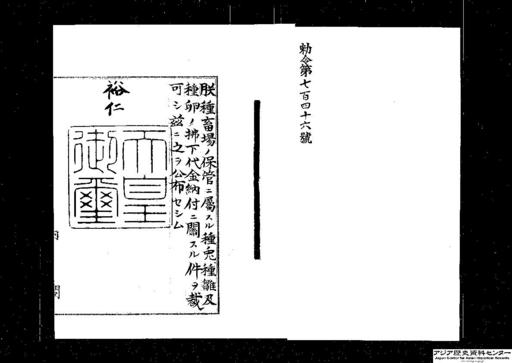 勅令第七百四十六號
朕種畜場ノ保管ニ屬スル種兎種雛及
種卵ノ拂下代金納付ニ關スル件ヲ裁
可シ茲ニ之ヲ公布セシム
裕仁
天皇
御璽
内閣
アジア歴史資料センター
Japan Center for Asian Historical Records